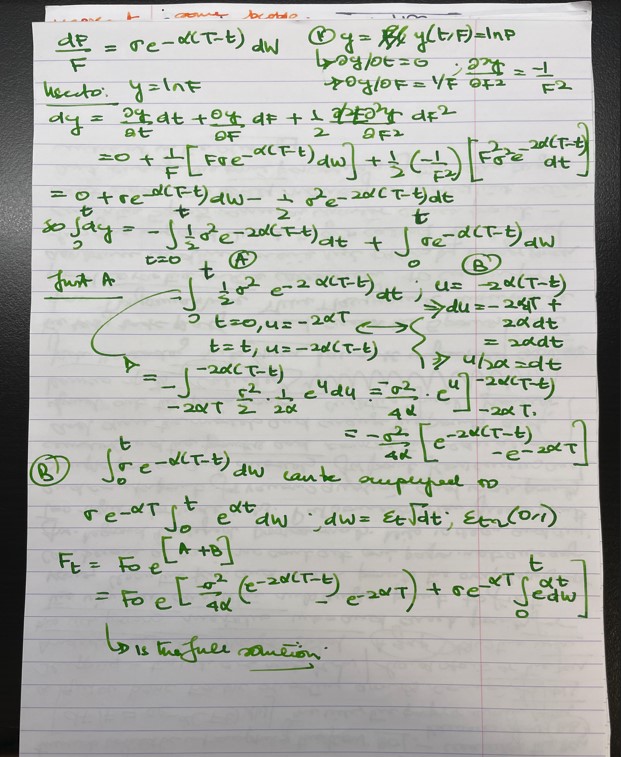 dF/F = σe^{-α(T-t)} dW  (*) y = y(t,F) = lnF
↳ ∂y/∂t = 0 ; ∂²y/∂F² = -1/F²
→ ∂y/∂F = 1/F
y = lnF
dy = ∂y/∂t dt + ∂y/∂F dF + 1/2 ∂²y/∂F² dF²
= 0 + 1/F [Fσe^{-α(T-t)} dW] + 1/2 (-1/F²) [F²σ²e^{-2α(T-t)} dt]
= 0 + σe^{-α(T-t)} dW - 1/2 σ²e^{-2α(T-t)} dt
so ∫_0^t dy = -∫_{t=0}^t 1/2 σ²e^{-2α(T-t)} dt + ∫_0^t σe^{-α(T-t)} dW
(A) (B)
Just A  -∫_0^t 1/2 σ² e^{-2α(T-t)} dt ; u = -2α(T-t)
⇒ du = -2αT +
t=0, u = -2αT ↔ 2αdt
t=t, u = -2α(T-t) = 2αdt
⇒ u/2α = dt
= -∫_{-2αT}^{-2α(T-t)} σ²/2 · 1/2α e^u du = -σ²/4α · e^u ]_{-2αT.}^{-2α(T-t)}
= -σ²/4α [e^{-2α(T-t)} - e^{-2αT}]
(B) ∫_0^t σe^{-α(T-t)} dW can be simplified to
σe^{-αT} ∫_0^t e^{αt} dW ; dW = ε_t√dt ; ε_t ~ (0,1)
F_t = F_0 e^{[A+B]}
= F_0 e [-σ²/4α (e^{-2α(T-t)} - e^{-2αT}) + σe^{-αT} ∫_0^t e^{αt} dW]
↳ is the full solution.